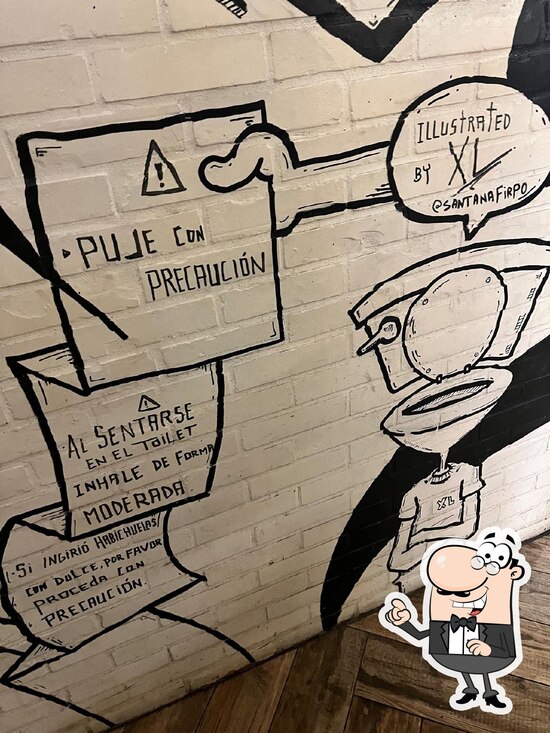 ILLUSTRATED
BY XL
@SANTANAFIRPO
!
PUJE CON
PRECAUCIÓN
!
AL SENTARSE
EN EL TOILET
INHALE DE FORMA
MODERADA
SI INGIRIÓ HABICHUELAS
CON DULCE, POR FAVOR
PROCEDA CON
PRECAUCIÓN.
XL